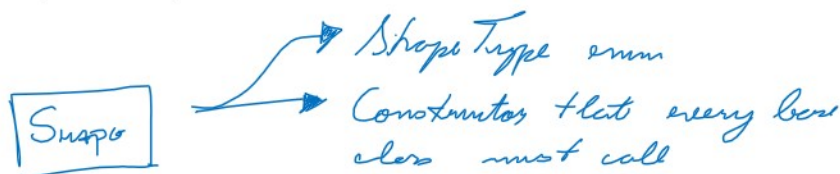 ShapeType enum
SHAPE
Constructor that every base
class must call